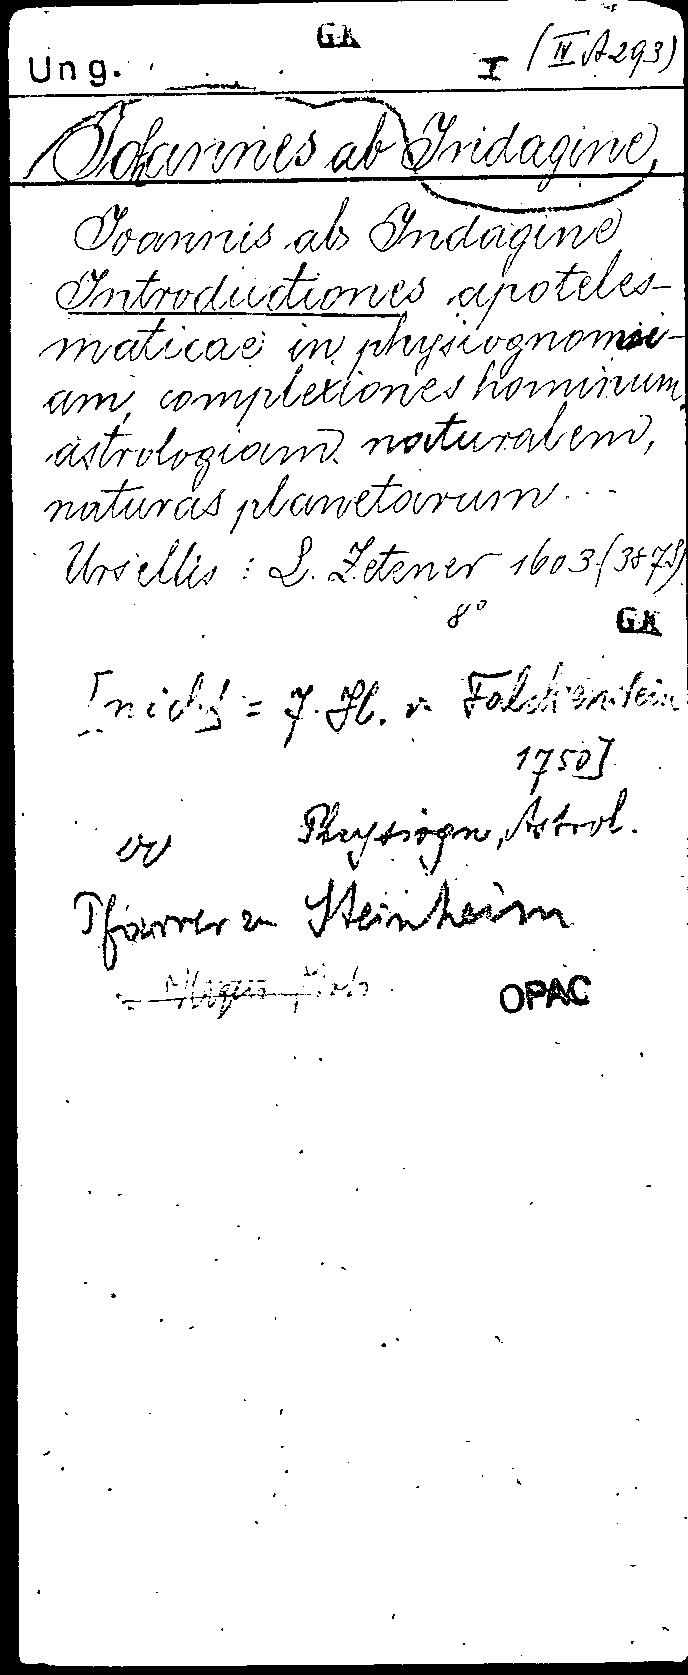 GK
Ung. I (IV A 293)
Johannes ab Indagine,
Ioannis ab Indagine
Introductiones apoteles-
maticae in physiognomi-
am, complexiones hominum,
astrologiam naturalem,
naturas planetarum...
Ursellis : L. Zetzner 1603 (387 S)
8°
GK
[nicht = J. Hl. v. Falckenstein
1750]
Physiogn, Astrol.
Pfarrer zu Steinheim
OPAC